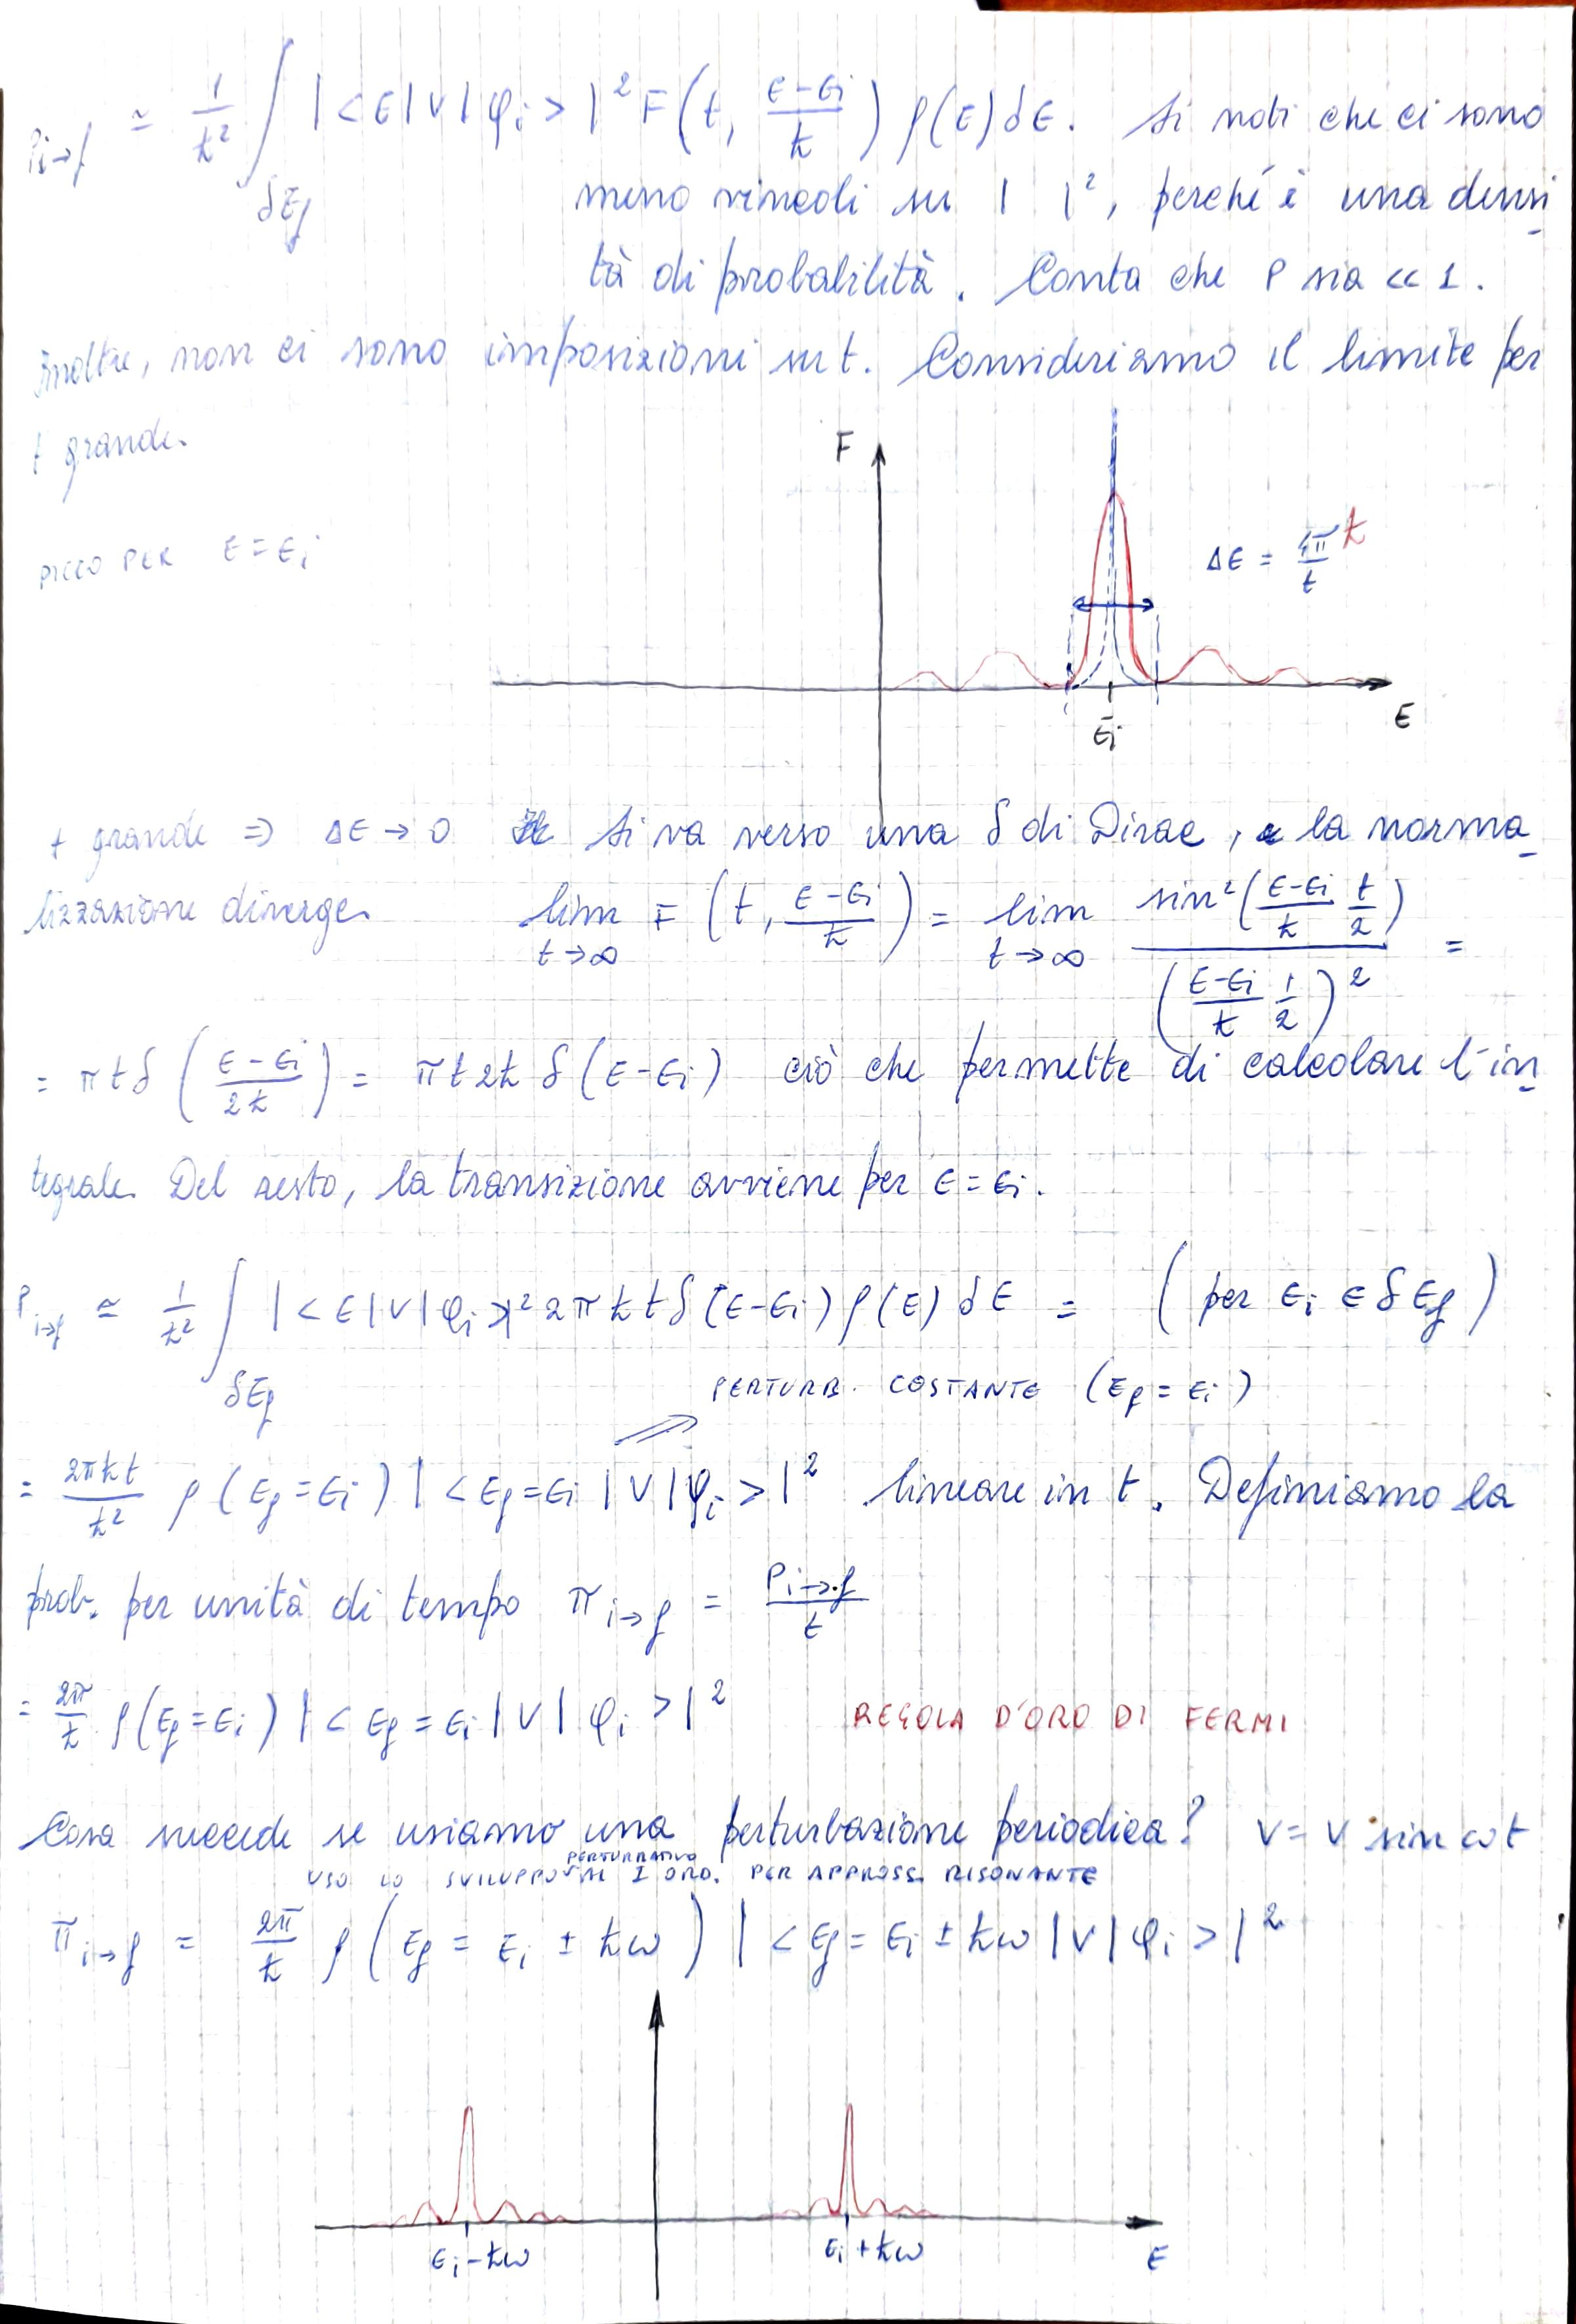 P_{i→f} ≃ 1/ħ² ∫_{δE_f} |<E|V|φ_i>|² F(t, (E-E_i)/ħ) ρ(E) dE. Si noti che ci sono
meno vincoli su | |², perché è una densi
tà di probabilità. Conta che P sia << 1.
Inoltre, non ci sono imposizioni su t. Consideriamo il limite per
t grande.
F
PICCO PER E = E_i
ΔE = 4π/t ħ
E_i
E
t grande ⇒ ΔE → 0 Si va verso una δ di Dirac, la norma
lizzazione diverge. lim_{t→∞} F(t, (E-E_i)/ħ) = lim_{t→∞} sin²((E-E_i)/ħ t/2) / ((E-E_i)/ħ 1/2)² =
= π t δ((E-E_i)/2ħ) = π t 2ħ δ(E-E_i) ciò che permette di calcolare l'in
tegrale. Del resto, la transizione avviene per E = E_i.
P_{i→f} ≃ 1/ħ² ∫_{δE_f} |<E|V|φ_i>|² 2πħ t δ(E-E_i) ρ(E) dE = (per E_i ∈ δE_f)
PERTURB. COSTANTE (E_f = E_i)
= 2πħt/ħ² ρ(E_f=E_i) |<E_f=E_i|V|φ_i>|² lineare in t. Definiamo la
prob. per unità di tempo π_{i→f} = P_{i→f}/t
= 2π/ħ ρ(E_f=E_i) |<E_f=E_i|V|φ_i>|² REGOLA D'ORO DI FERMI
Cosa succede se usiamo una perturbazione periodica? V = V sin ωt
USO LO SVILUPPO PERTURBATIVO AL I ORD. PER APPROSS. RISONANTE
π_{i→f} = 2π/ħ ρ(E_f = E_i ± ħω) |<E_f = E_i ± ħω|V|φ_i>|²
E_i - ħω
E_i + ħω
E